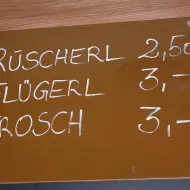 RÜSCHERL 2,50
FLÜGERL 3,-
FROSCH 3,-